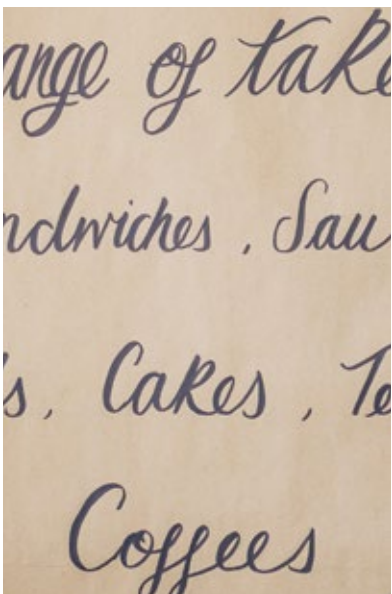 ange of take
ndwiches, Sau
s, Cakes, Te
Coffees